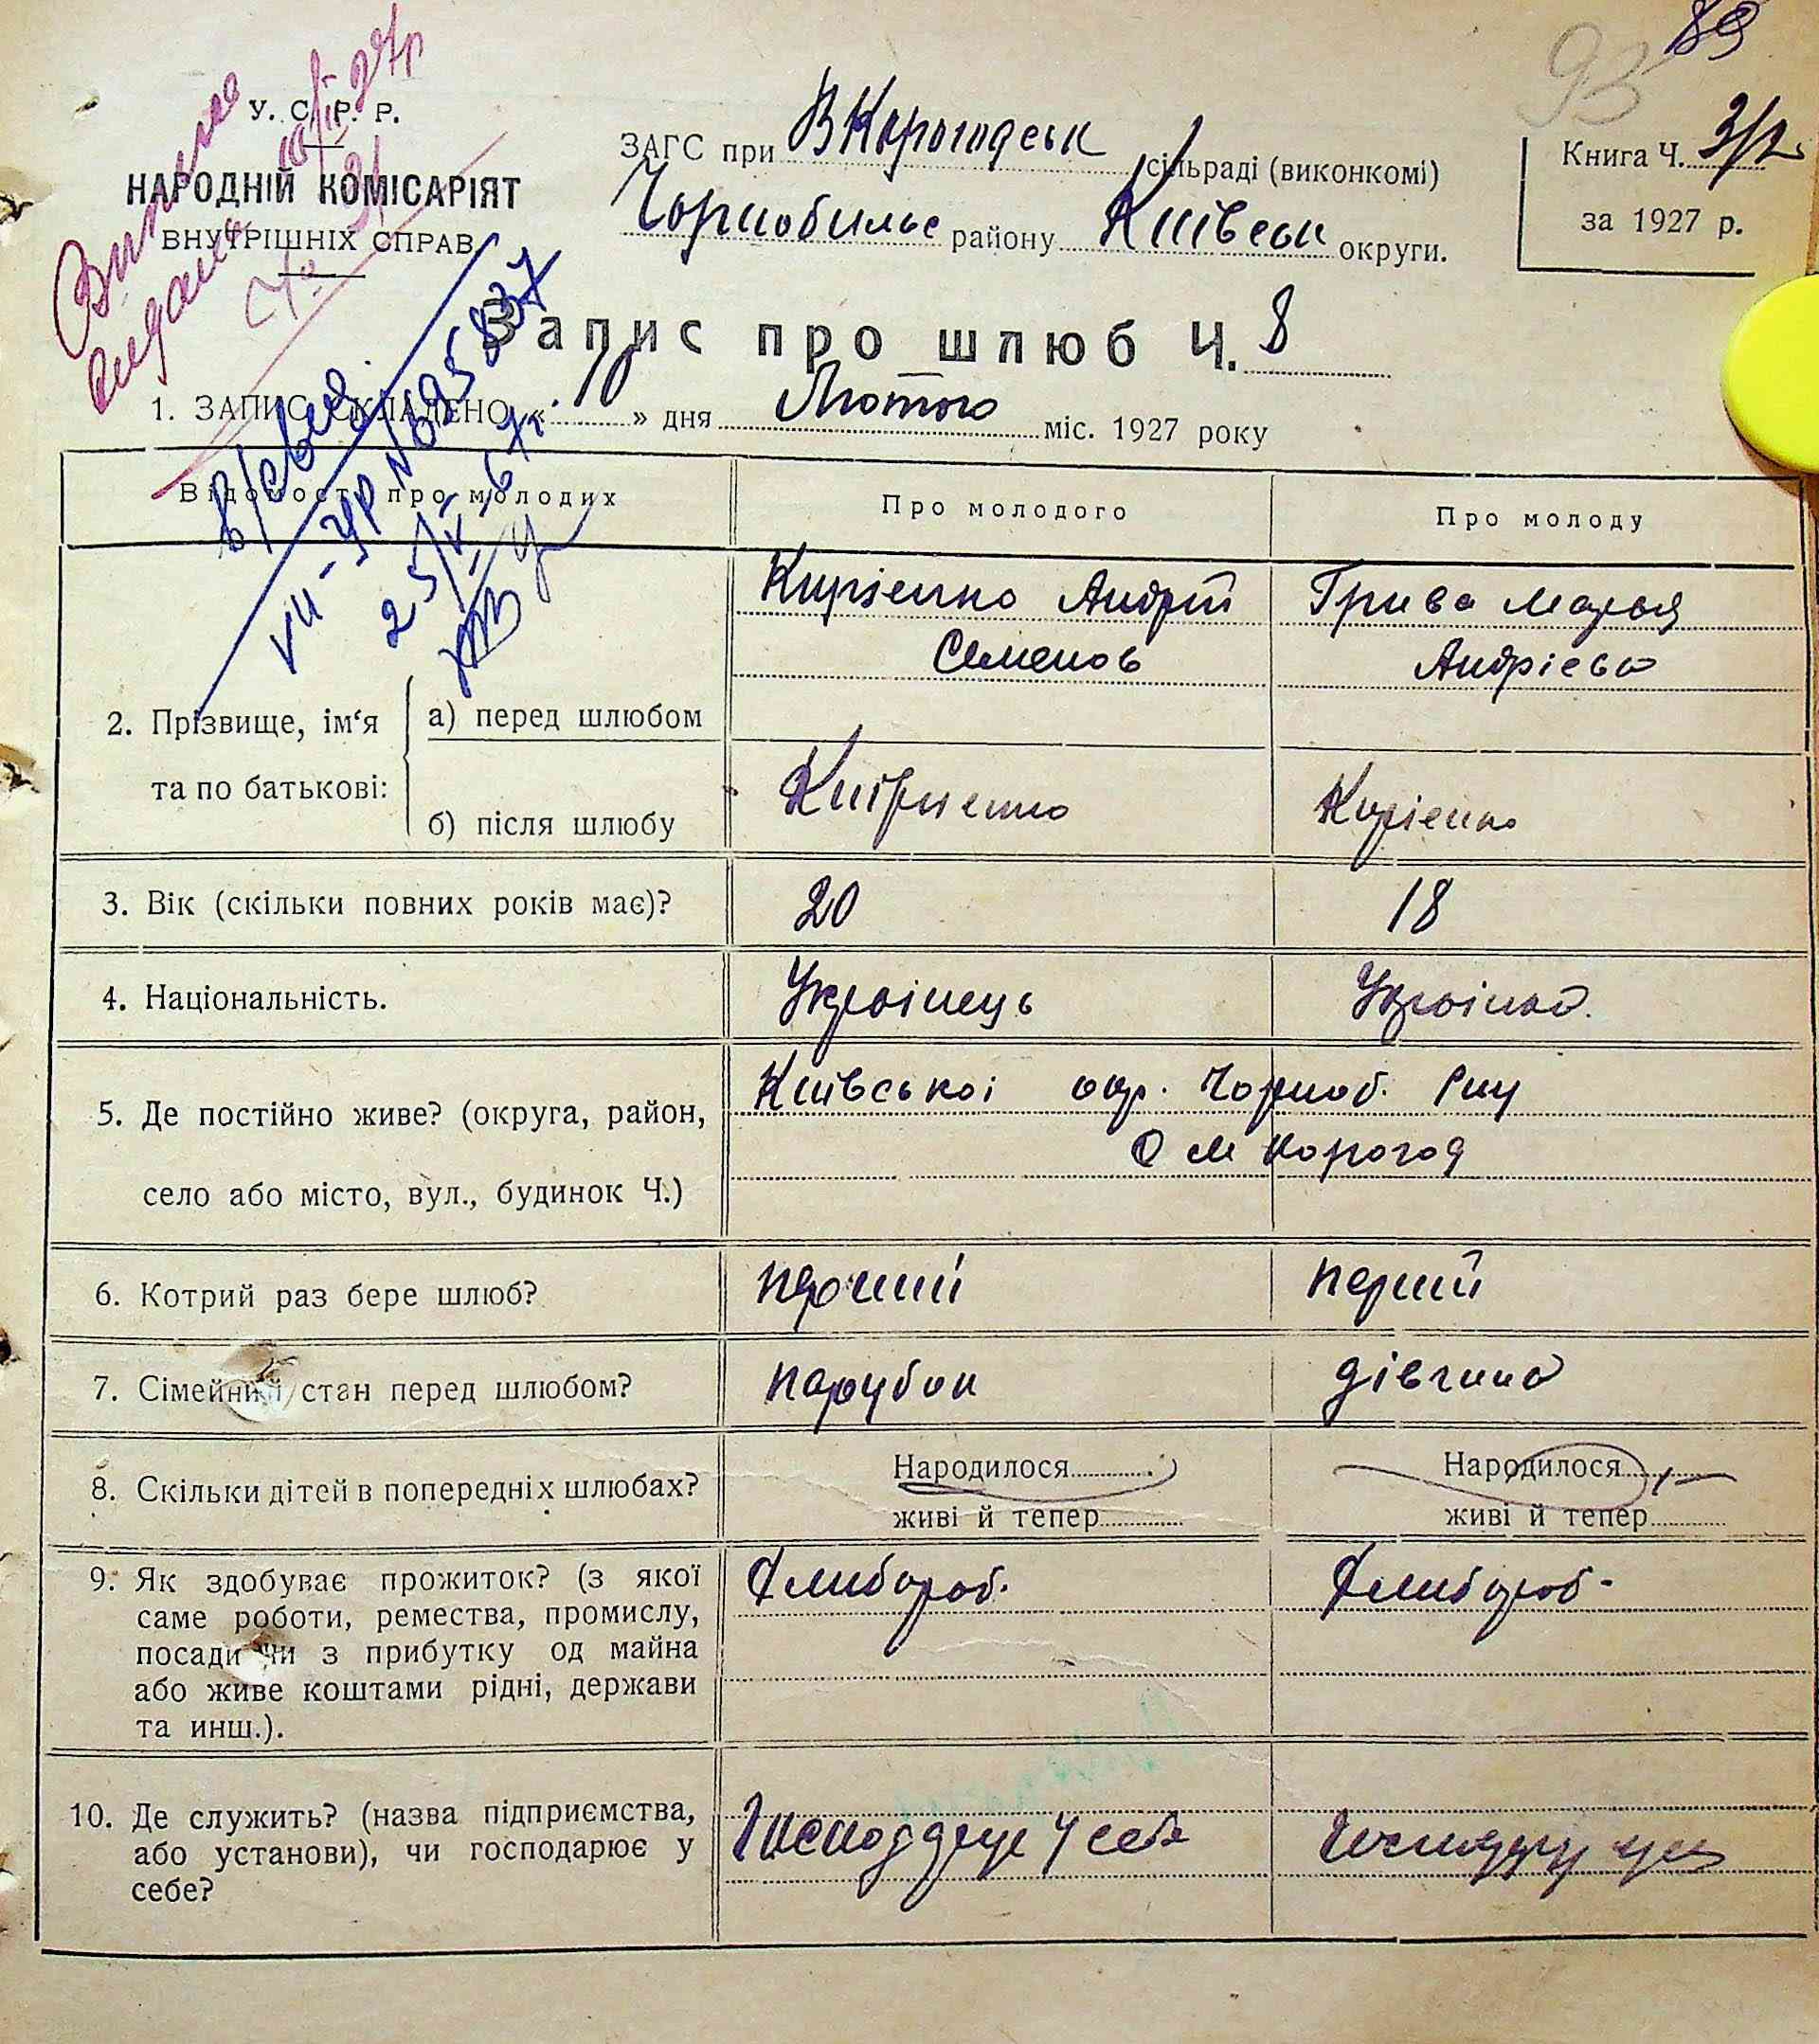 89
93
У. С. Р. Р.
НАРОДНІЙ КОМІСАРІЯТ
ВНУТРІШНІХ СПРАВ
ЗАГС при В Карогодськ сільраді (виконкомі)
Чорнобильс району Київськ округи.
Книга Ч. 3/2
за 1927 р.
Запис про шлюб Ч. 8
1. ЗАПИС СКЛАДЕНО «10» дня Лютого міс. 1927 року
Відомості про молодих Про молодого Про молоду
Кирієнко Андрій Грива Марья
Семенов Андрієва
2. Прізвище, ім‘я
та по батькові:
а) перед шлюбом
б) після шлюбу Кирієнко Кирієнко
3. Вік (скільки повних років має)? 20 18
4. Національність. Українець Українка.
5. Де постійно живе? (округа, район,
село або місто, вул., будинок Ч.)
Київської окр. Чорноб. Рну
Корогод
6. Котрий раз бере шлюб? перший перший
7. Сімейний стан перед шлюбом? парубок дівчина
8. Скільки дітей в попередніх шлюбах? Народилося Народилося
живі й тепер живі й тепер
9. Як здобуває прожиток? (з якої
саме роботи, ремества, промислу,
посади чи з прибутку од майна
або живе коштами рідні, держави
та инш.).
Хлибороб. Хлибороб-
10. Де служить? (назва підприємства,
або установи), чи господарює у
себе?
у себе